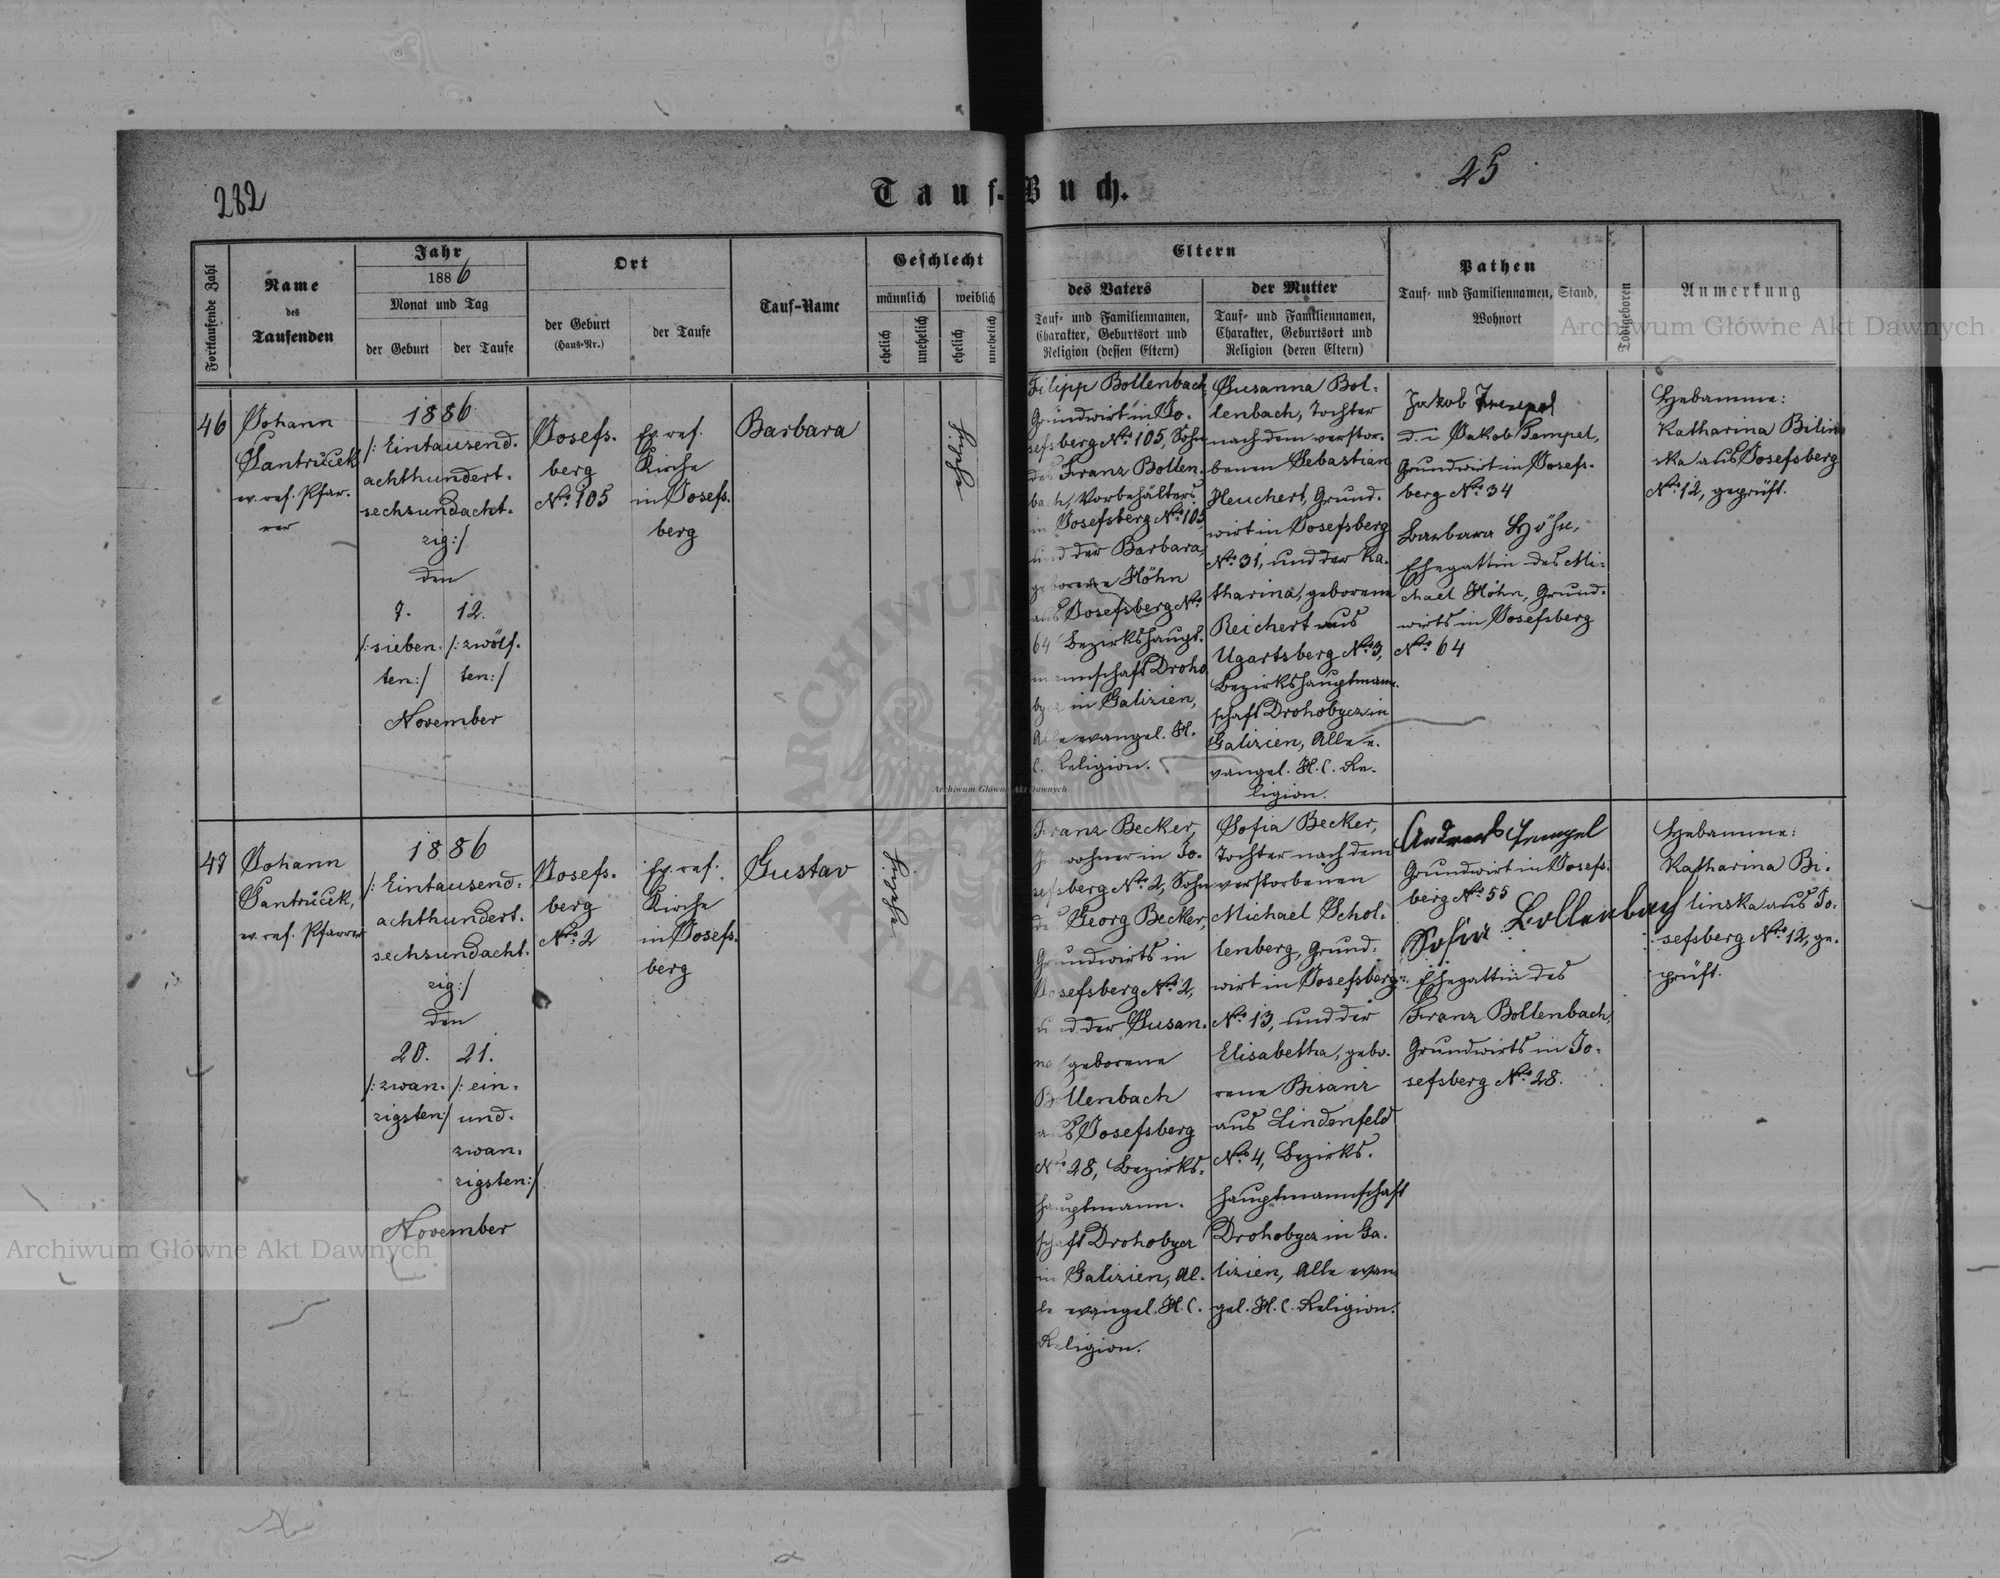 282
25
Tauf-Buch.
Fortlaufende Zahl
Name
des
Taufenden
Jahr
1886
Monat und Tag
der Geburt
der Taufe
Ort
der Geburt
(Haus-Nr.)
der Taufe
Tauf-Name
Geschlecht
männlich
weiblich
ehelich
unehelich
ehelich
unehelich
Eltern
des Vaters
Tauf- und Familiennamen,
Charakter, Geburtsort und
Religion (dessen Eltern)
der Mutter
Tauf- und Familiennamen,
Charakter, Geburtsort und
Religion (deren Eltern)
Pathen
Tauf- und Familiennamen, Stand,
Wohnort
Todtgeboren
Anmerkung
46
Johann
Jantrůcek
ev. ref. Pfar-
rer
1886
/: Eintausend-
achthundert-
sechsundacht-
zig:/
den
7.
12.
/:sieben-
/:zwölf-
ten:/
ten:/
November
Josefs-
berg
No 105
Ev. ref.
Kirche
in Josefs-
berg
Barbara
Filipp Bollenbach
Grundwirt in Jo-
sefsberg No 105, Sohn
des Franz Bollen-
bach, Vorbehälters
in Josefsberg No 105
und der Barbara,
geborene Höhn
aus Josefsberg No
64 Bezirkshaupt-
mannschaft Droho
bycz in Galizien,
Alle evangel. H.
C. Religion.
Susanna Bol-
lenbach, Tochter
nach dem verstor-
benen Sebastian
Heuchert, Grund-
wirt in Josefsberg
No 31, und der Ka-
tharina, geborene
Reichert aus
Ugartsberg No 3,
Bezirkshauptmann-
schaft Drohobycz in
Galizien, Alle e-
vangel. H. C. Re-
ligion.
Jakob Tempel
d. i Jakob Tempel,
Grundwirt in Josefs-
berg No 34
Barbara Höhn,
Ehegattin des Mi-
chael Höhn, Grund-
wirts in Josefsberg
No 64
Hebamme:
Katharina Bilin
ska aus Josefsberg
No 12, geprüft.
47
Johann
Jantrůcek,
ev. ref. Pfarrer
1886
/: Eintausend-
achthundert-
sechsundacht-
zig:/
den
20.
21.
/:zwan-
/: ein-
zigsten:/
und-
zwan-
zigsten:/
November
Josefs-
berg
No 2
Ev. ref.
Kirche
in Josefs-
berg
Gustav
Franz Becker,
Inwohner in Jo-
sefsberg No 2, Sohn
des Georg Becker,
Grundwirts in
Josefsberg No 2,
und der Susan-
na geborene
Bollenbach
aus Josefsberg
No 28, Bezirks-
hauptmann-
schaft Drohobycz
in Galizien, Al-
le evangel. H. C.
Religion.
Sofia Becker,
Tochter nach dem
verstorbenen
Michael Schol-
lenberg, Grund-
wirt in Josefsberg
No 13, und der
Elisabetha, gebo-
rene Bisanz
aus Lindenfeld
No 4, Bezirks-
hauptmannschaft
Drohobycz in Ga-
lizien, Alle evan
gel. H. C. Religion.
Andreas Tempel
Grundwirt in Josefs-
berg No 55
Sofia Bollenbach
Ehegattin des
Franz Bollenbach,
Grundwirts in Jo-
sefsberg No 28.
Hebamme:
Katharina Bi-
linska aus Jo-
sefsberg No 12, ge-
prüft.
Archiwum Główne Akt Dawnych
Archiwum Główne Akt Dawnych
Archiwum Główne Akt Dawnych